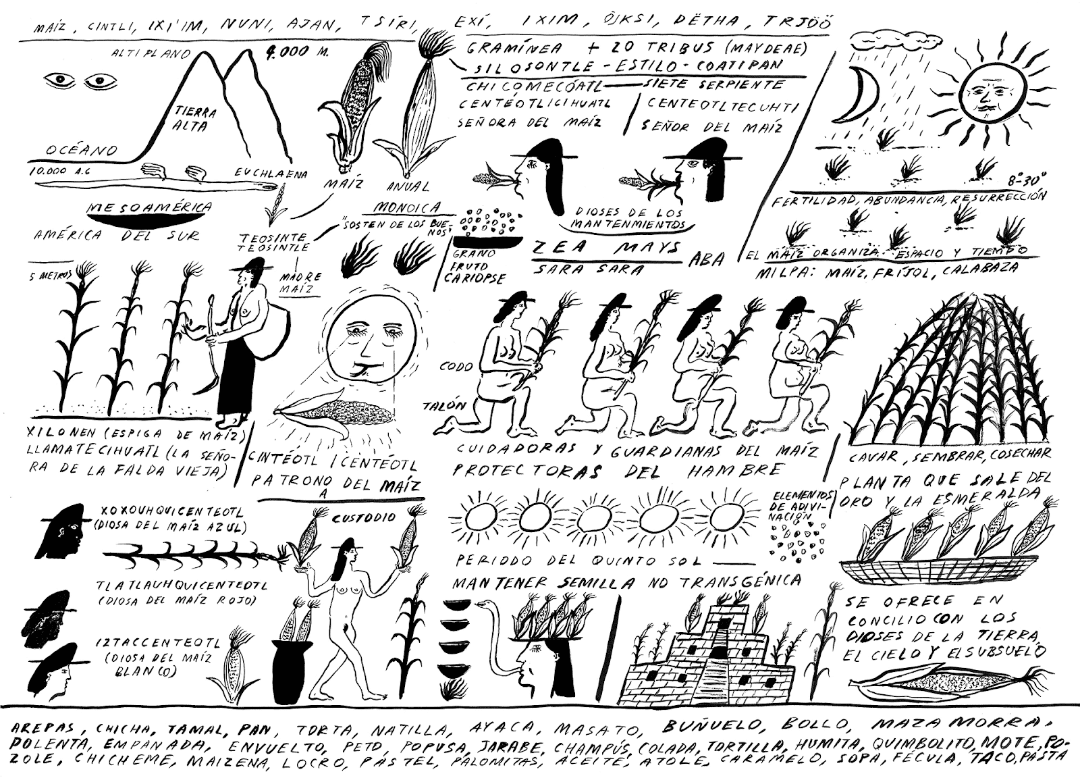 MAÍZ, CINTLI, IXI'IM, NUNI, AJAN, TSÍRI, EXÍ, IXIM, ÖJKSI, DËTHA, TRJÖÖ
ALTIPLANO
4.000 M.
TIERRA
ALTA
OCÉANO
10.000 A.C
EUCHLAENA
MESOAMÉRICA
AMÉRICA DEL SUR
TEOSINTE
TEOSINTLE
MADRE
MAÍZ
MAÍZ
ANUAL
MONOICA
"SOSTEN DE LOS BUE-
NOS"
GRANO
FRUTO
CARIOPSE
GRAMÍNEA + 20 TRIBUS (MAYDEAE)
SILOSONTLE - ESTILO - COATIPAN
CHICOMECÓATL — SIETE SERPIENTE
CENTÉOTLICIHUATL
SEÑORA DEL MAÍZ
CENTEOTLTECUHTI
SEÑOR DEL MAÍZ
DIOSES DE LOS
MANTENMIENTOS
ZEA MAYS
SARA SARA
ABA
8°-30°
FERTILIDAD, ABUNDANCIA, RESURRECCIÓN
EL MAÍZ ORGANIZA: ESPACIO Y TIEMPO
MILPA: MAÍZ, FRÍJOL, CALABAZA
5 METROS
XILONEN (ESPIGA DE MAÍZ)
LLAMATECIHUATL (LA SEÑO-
RA DE LA FALDA VIEJA)
CINTÉOTL / CENTÉOTL
PATRONO DEL MAÍZ
A
CODO
TALÓN
CUIDADORAS Y GUARDIANAS DEL MAÍZ
PROTECTORAS DEL HAMBRE
CAVAR, SEMBRAR, COSECHAR
PLANTA QUE SALE DEL
ORO Y LA ESMERALDA
XOXOUHQUICENTEOTL
(DIOSA DEL MAÍZ AZUL)
CUSTODIO
TLATLAUHQUICENTEOTL
(DIOSA DEL MAÍZ ROJO)
IZTACCENTEOTL
(DIOSA DEL MAÍZ
BLANCO)
ELEMENTOS
DE ADIVI-
NACIÓN
PERIODO DEL QUINTO SOL
MANTENER SEMILLA NO TRANSGÉNICA
SE OFRECE EN
CONCILIO CON LOS
DIOSES DE LA TIERRA,
EL CIELO Y EL SUBSUELO
AREPAS, CHICHA, TAMAL, PAN, TORTA, NATILLA, AYACA, MASATO, BUÑUELO, BOLLO, MAZAMORRA.
POLENTA, EMPANADA, ENVUELTO, PETO, POPUSA, JARABE, CHAMPÚS, COLADA, TORTILLA, HUMITA, QUIMBOLITO, MOTE, PO-
ZOLE, CHICHEME, MAIZENA, LOCRO, PASTEL, PALOMITAS, ACEITE, ATOLE, CARAMELO, SOPA, FÉCULA, TACO, PASTA